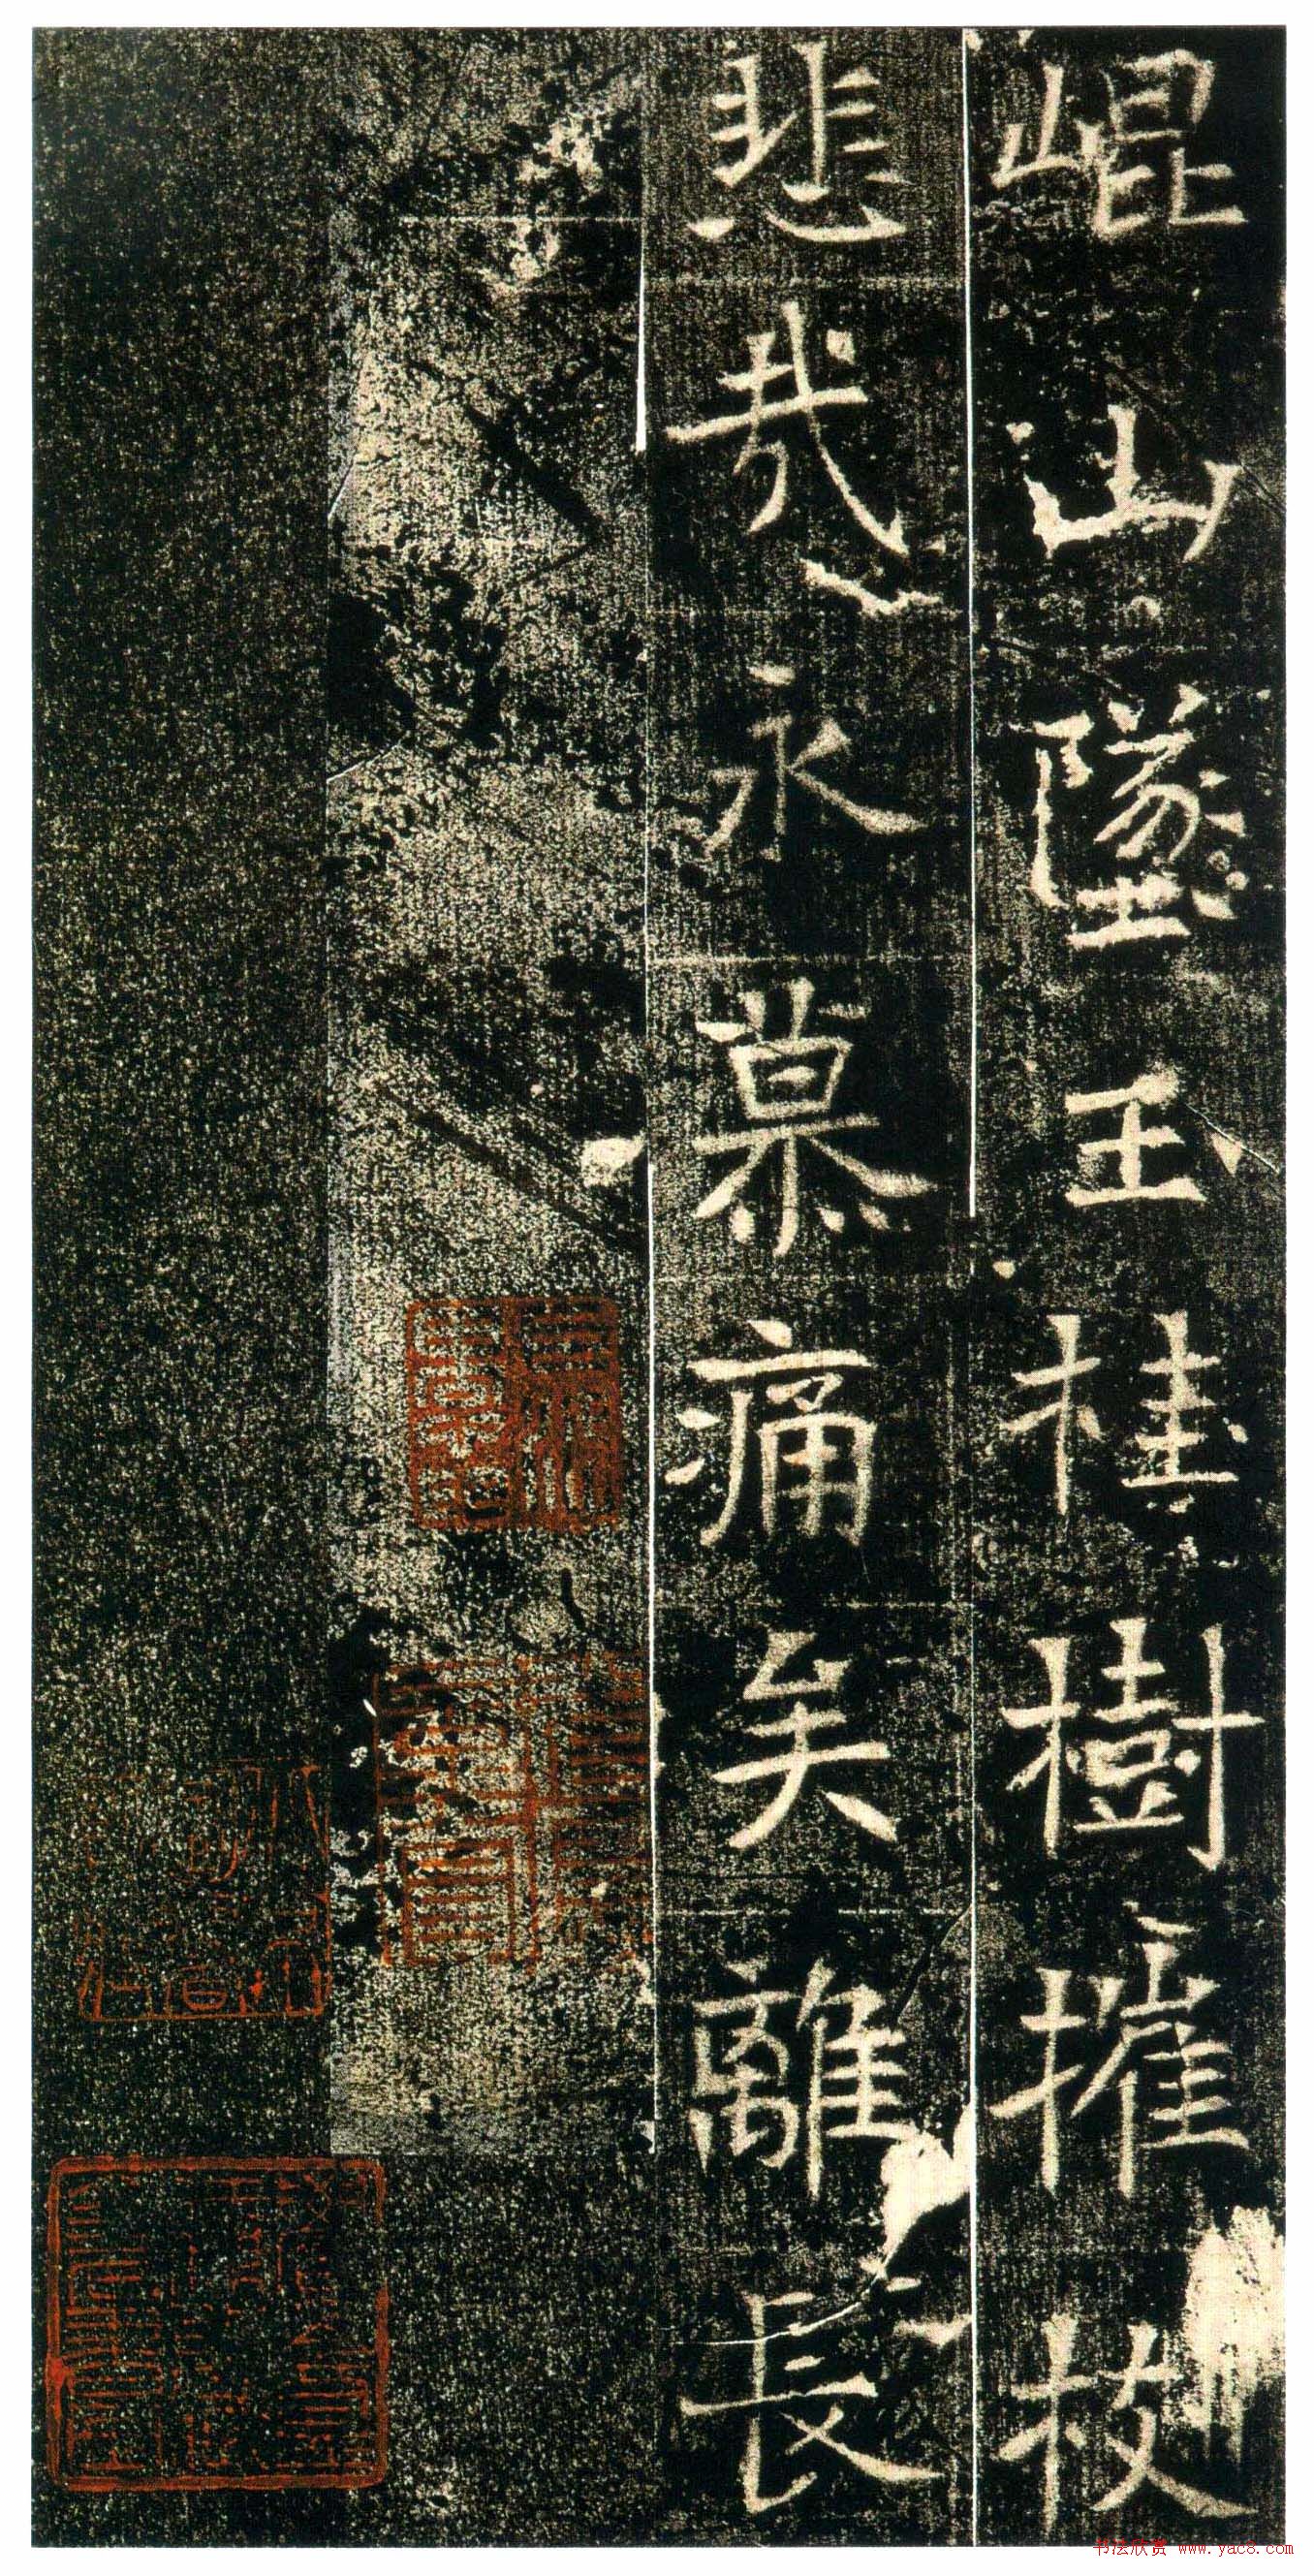 崐山墜玉桂樹摧枝
悲哉永慕痛矣離長
书法欣赏 www.yac8.com